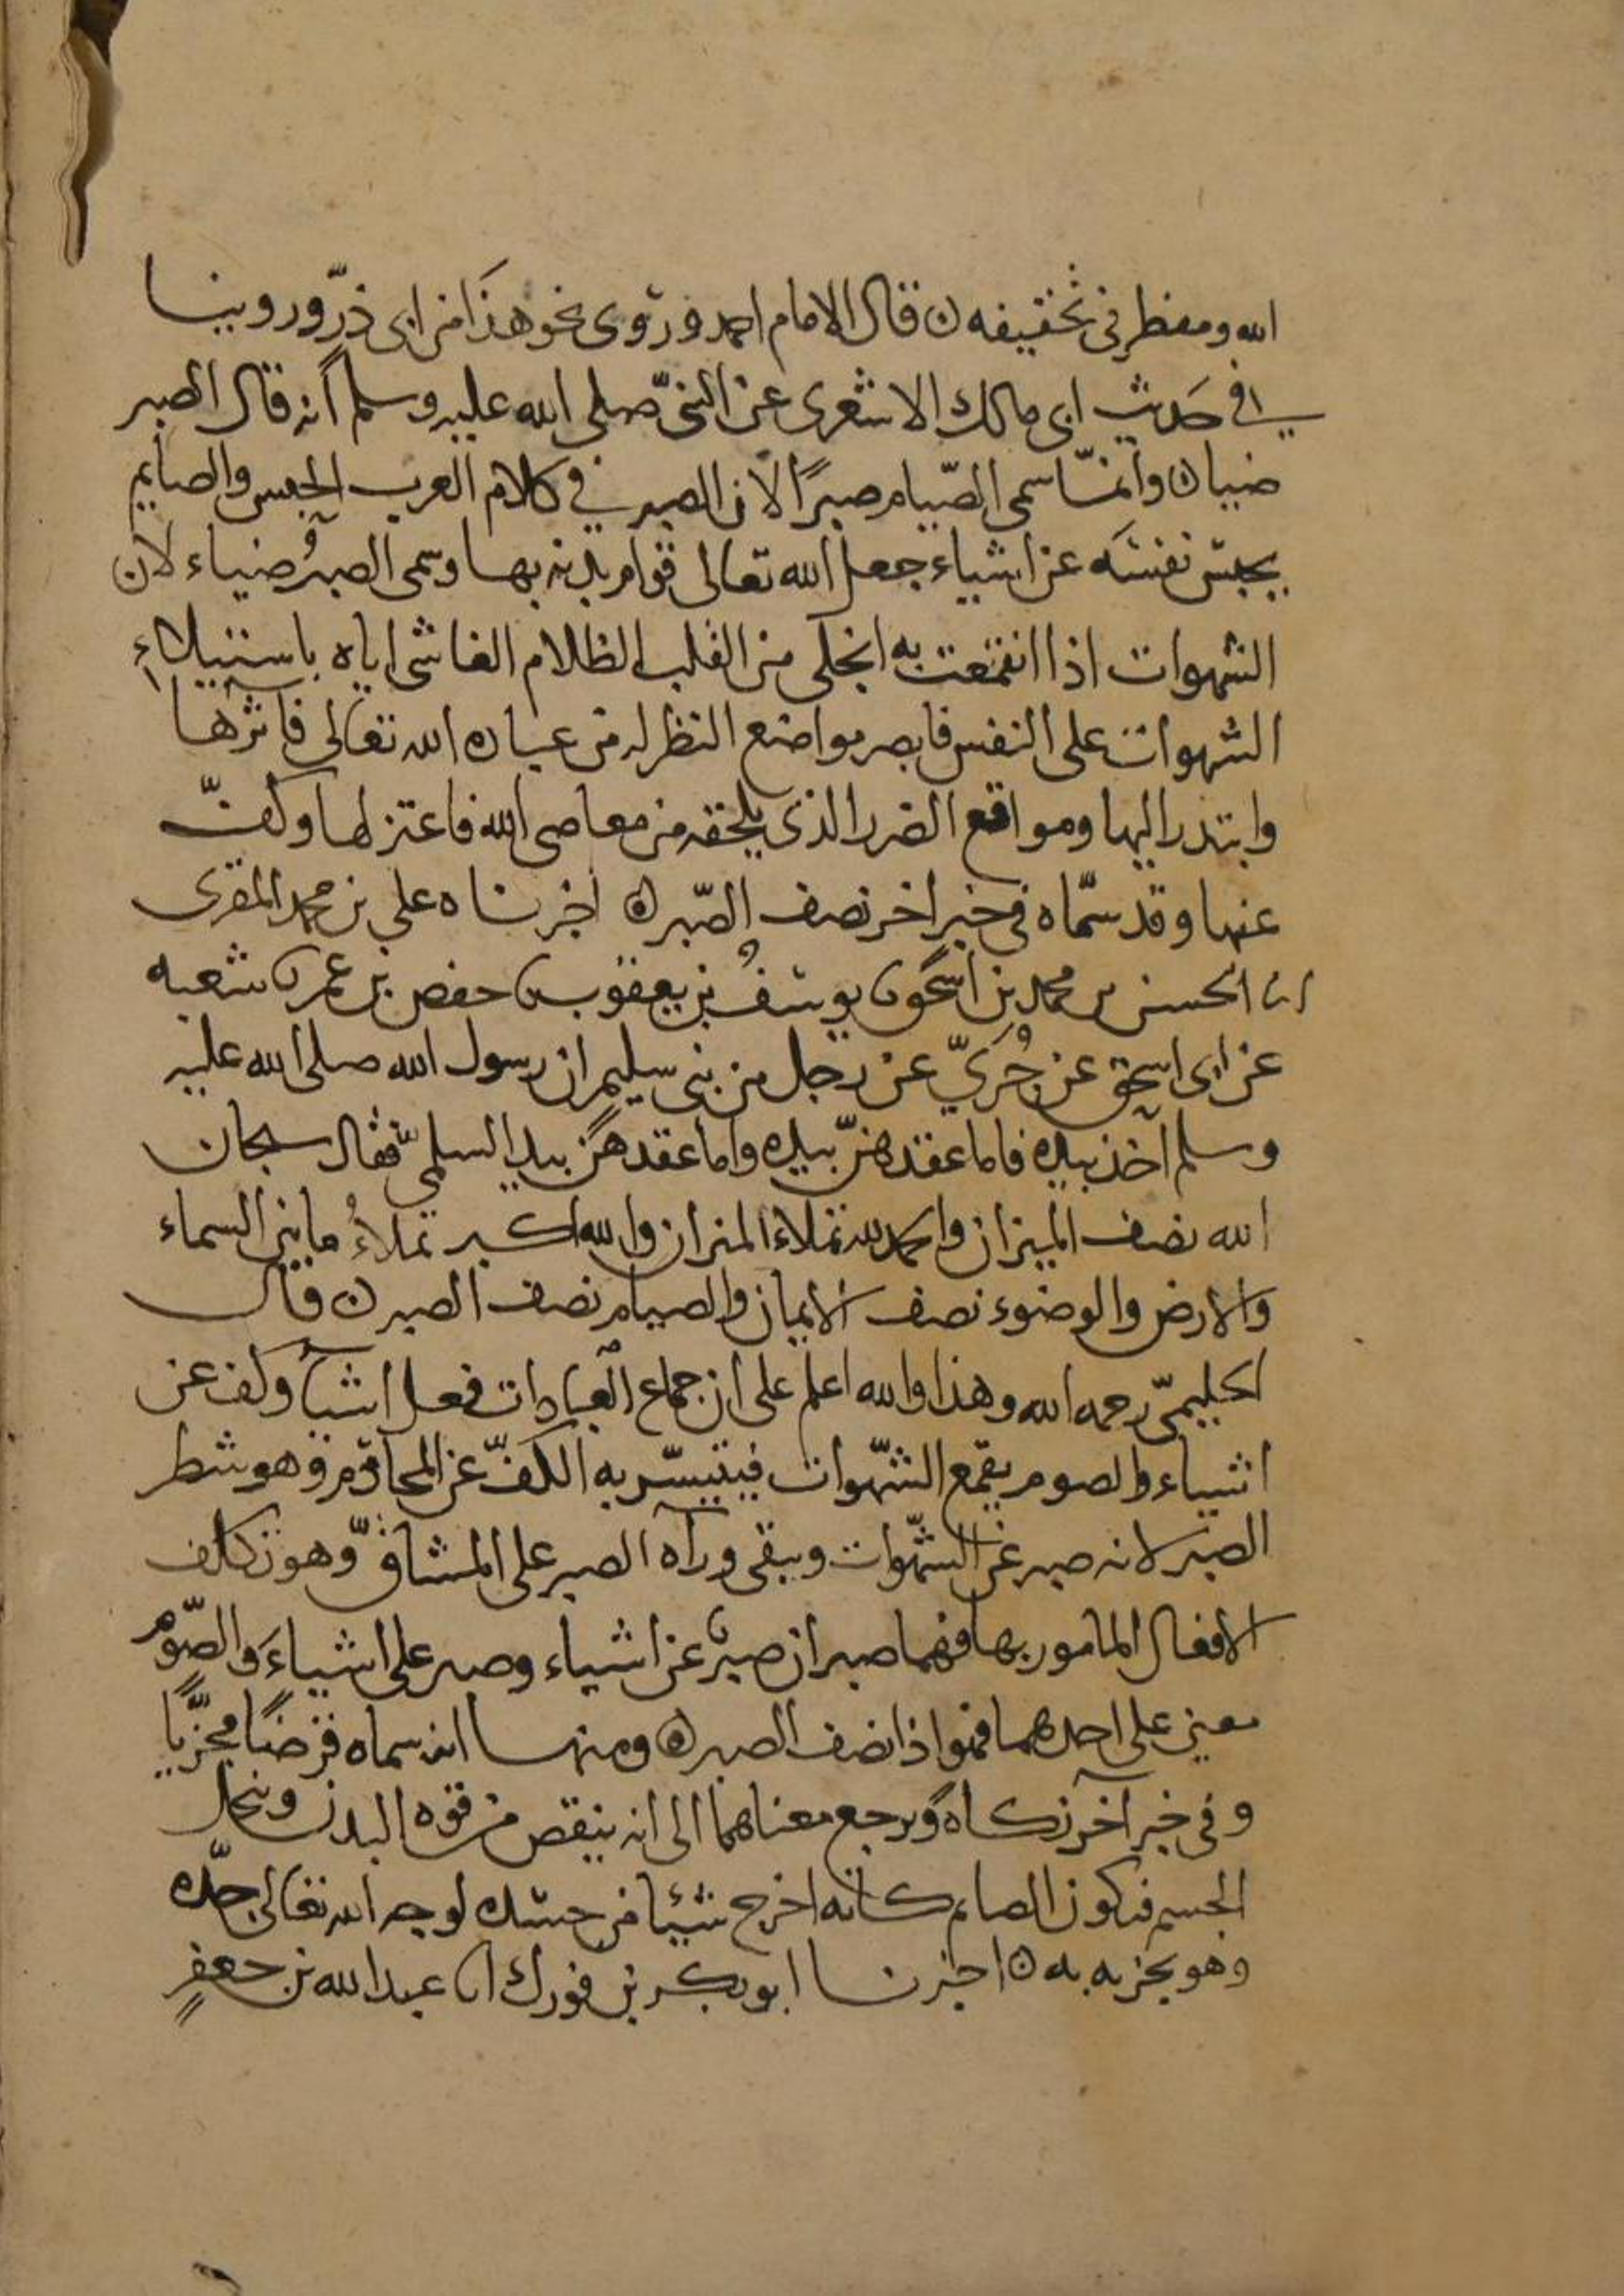 الله ومفطر في تخفيفه ن قال الامام احمد وروى نحو هذا من ابى ذرّ وروينا
في حديث ابى مالك الاشعرى عن النبىّ صلى الله عليه وسلم أنه قال الصبر
ضياء ن وانمّا سمى الصّيام صبرًا لان الصبر في كلام العرب الحبس والصايم
يحبس نفسه عن اشياء جعل الله تعالى قوام بدنه بها وسمى الصبرُ ضياء لان
الشهوات اذا انقمعت به انجلى من القلب الظلام الغاشى اياه باستيلاءِ
الشهوات على النفس فابصر مواضع النظر له من عباده الله تعالى فاثرها
وابتدر اليها ومواقع الضرر الذى يلحقه من معاصى الله فاعتزلها وكفّ
عنها وقد سمّاه في خبر اخر نصف الصّبر ه اخبرناه على بن محمد المقرى
انا الحسن بن محمد بن اسحق نا يوسفُ بن يعقوب نا حفص بن عمر نا شعبه
عن ابى اسحق عن جُرَيّ عن رجل من بنى سليم ان رسول الله صلى الله عليه
وسلم أخذ بيده فاما عقدهنّ بيده واما عقدهن بيد السلميّ فقال سبحان
الله نصف الميزان والحمد لله تملاء الميزان والله اكبر تملاءُ ما بين السماء
والارض والوضوء نصف الايمان والصيام نصف الصبر ن قال
الحليمىّ رحمه الله وهذا والله اعلم على ان جماع العبادات فعل اشيآ وكف عن
اشياء والصوم يقمع الشّهوات فيتيسّر به الكفّ عن المحارم وهو شطر
الصبر لانه صبر عن الشّهوات ويبقى ورآه الصبر على المشاقّ وهو تكلف
الافعال المامور بها فهما صبران صبرٌ عن اشياء وصبر على اشياءَ والصّوم
معين على احدهما فهو اذا نصف الصبر ه ومنها انه سماه فرضًا مجزيًا
وفى خبر آخر زكاة ويرجع معناهما الى انه ينقص من قوه البدن وينحل
الجسم فيكون الصايم كانه اخرج شيئا من جسده لوجه الله تعالى جدّه
وهو يجزيه به ه اخبرنا ابو بكر بن فورك انا عبد الله بن جعفرٍ